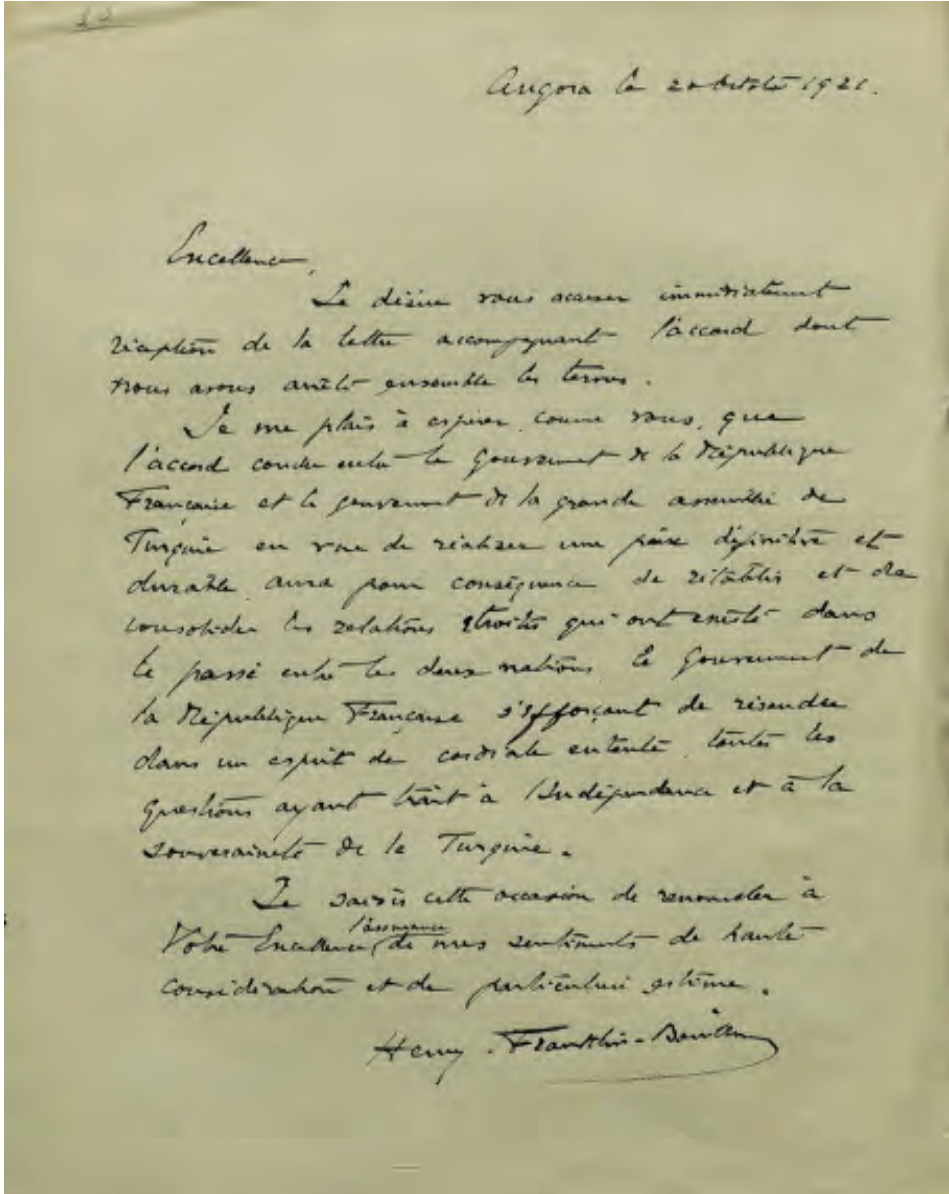 Angora le 20 octobre 1921.
Excellence,
Je désire vous accuser immédiatement
réception de la lettre accompagnant l'accord dont
nous avons arrêté ensemble les termes.
Je me plais à espérer, comme vous, que
l'accord conclu entre le Gouvernement de la République
Française et le gouvernement de la grande assemblée de
Turquie en vue de réaliser une paix définitive et
durable, aura pour conséquence de rétablir et de
consolider les relations étroites qui ont existé dans
le passé entre les deux nations, le Gouvernement de
la République Française s'efforçant de résoudre
dans un esprit de cordiale entente, toutes les
questions ayant trait à l'Indépendance et à la
souveraineté de la Turquie.
Je saisis cette occasion de renouveler à
Votre Excellence, l'assurance de mes sentiments de haute
considération et de particulière estime.
Henry. Franklin-Bouillon